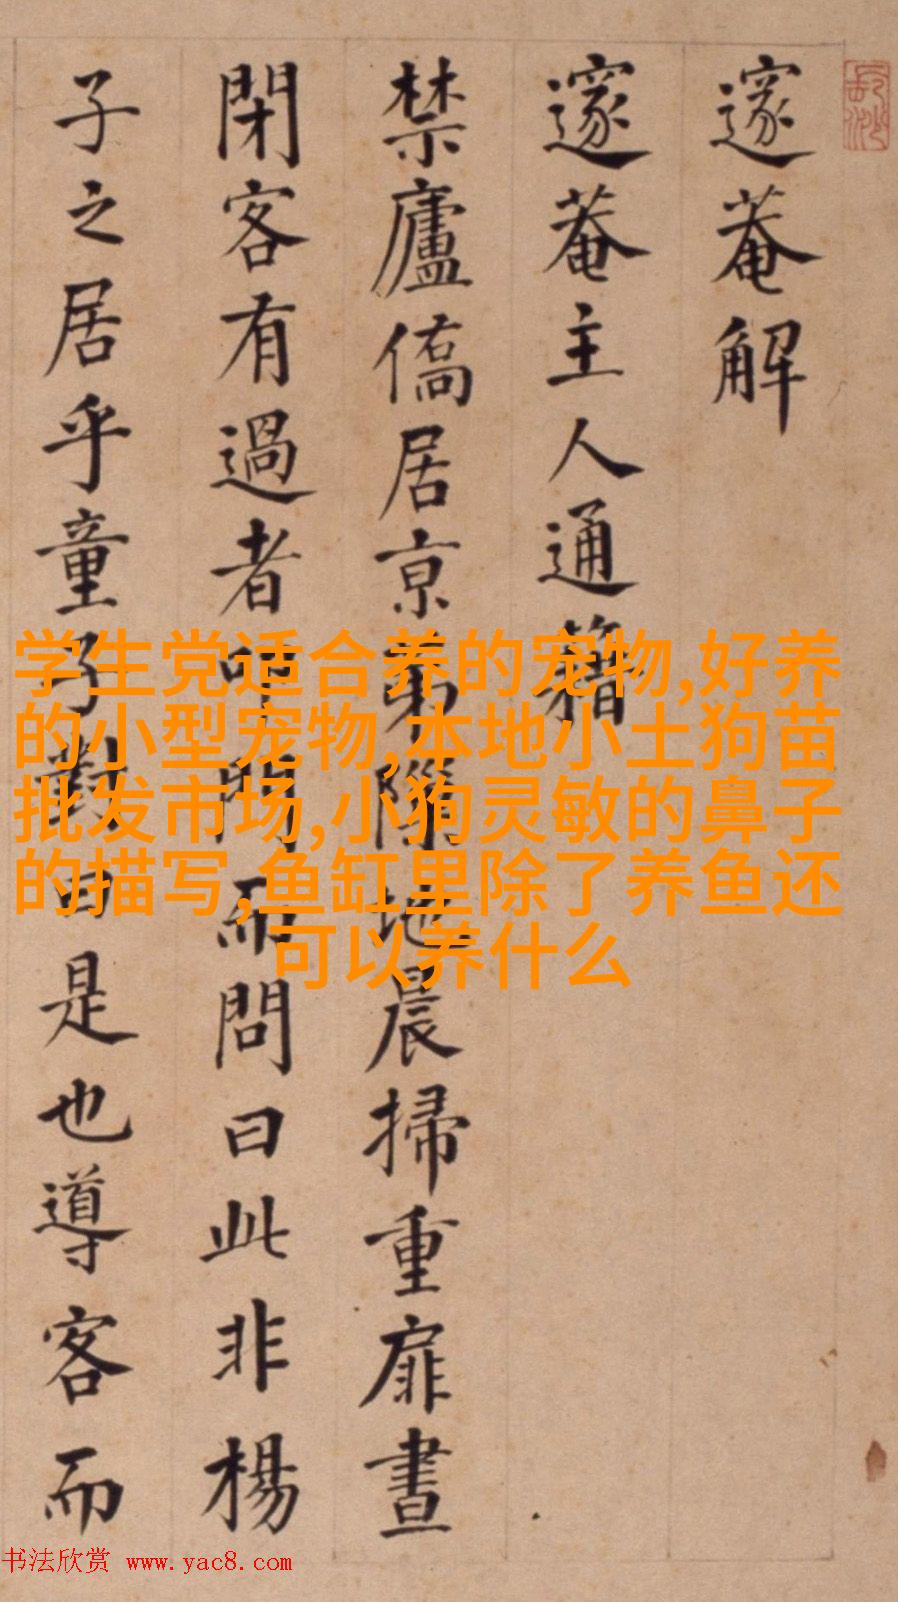 邃菴解
邃菴主人通籍
禁廬僑居京弟隙地晨掃重扉晝
閉客有過者叩門而問曰此非楊
子之居乎童子對曰是也導客而
学生党适合养的宠物,好养
的小型宠物,本地小土狗苗
批发市场,小狗灵敏的鼻子
的描写,鱼缸里除了养鱼还
可以养什么
书法欣赏 www.yac8.com